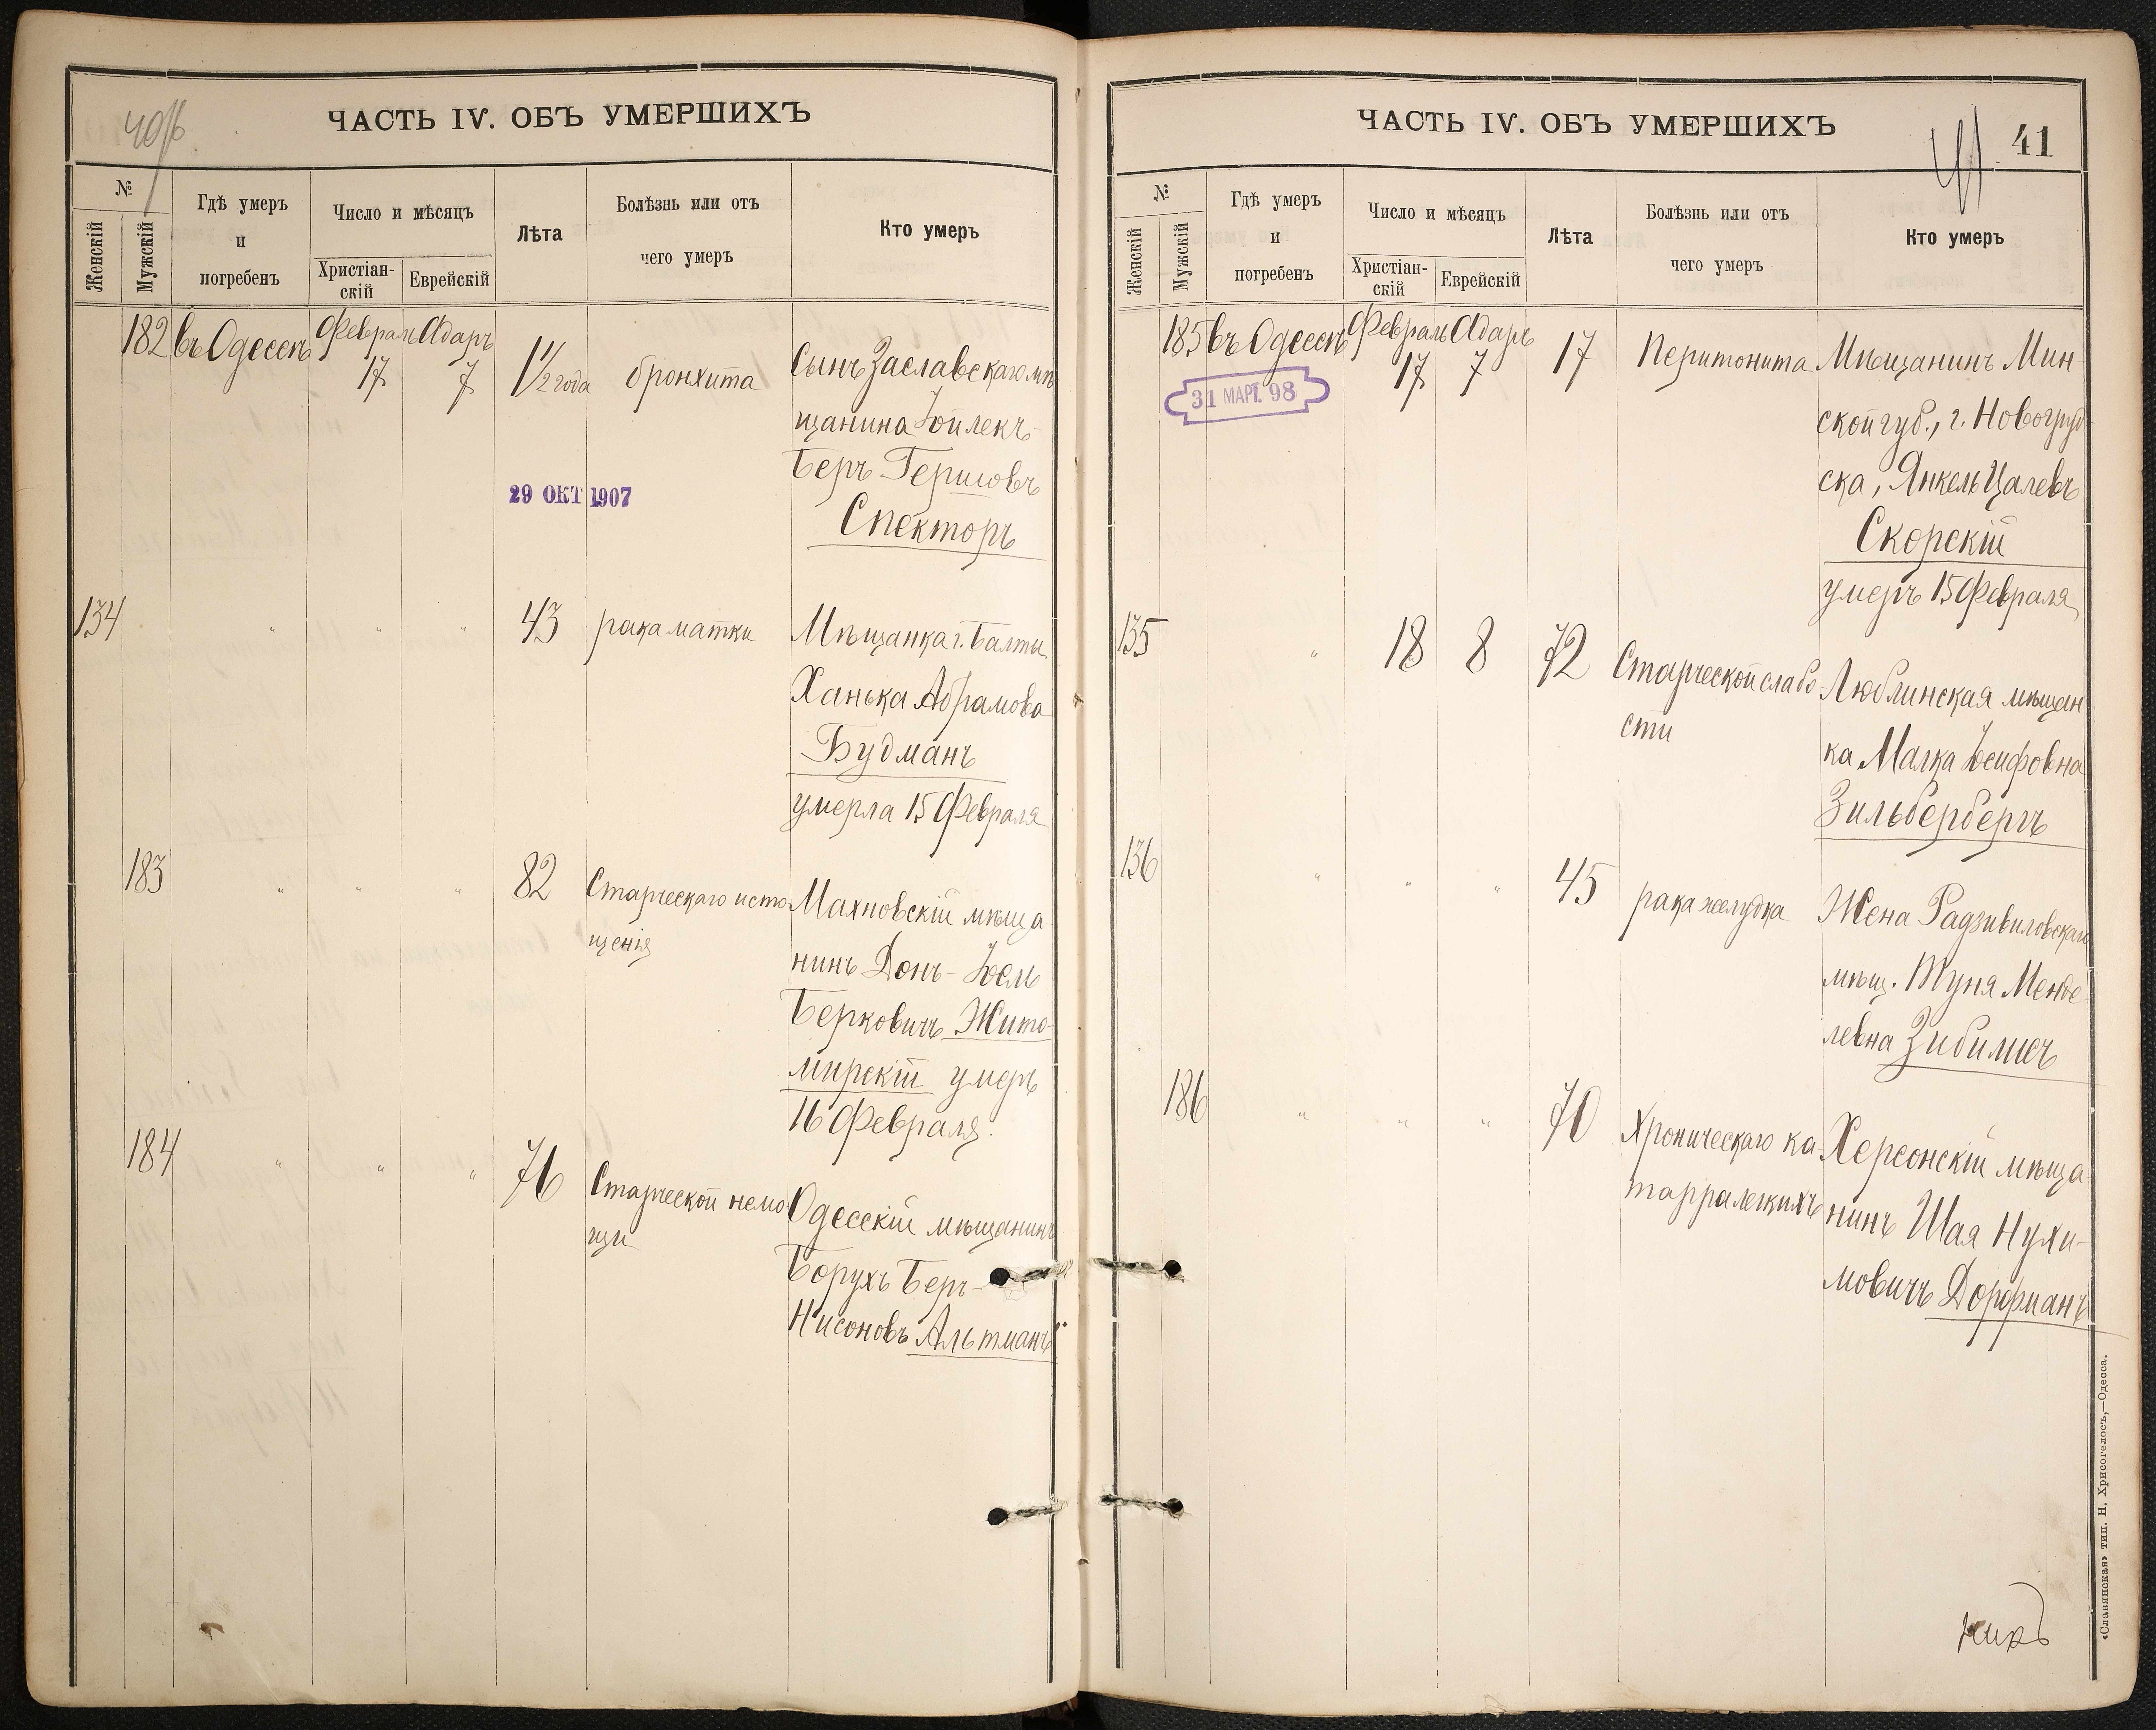 40б
ЧАСТЬ IV. ОБЪ УМЕРШИХЪ
№
Женскій
Мужскій
Гдѣ умеръ
и
погребенъ
Число и мѣсяцъ
Христіан-
скій
Еврейскій
Лѣта
Болѣзнь или отъ
чего умеръ
Кто умеръ
182 въ Одессѣ Февраль Адаръ
17 7 1 1/2 года бронхита
Сынъ Заславскаго мѣ
щанина
Беръ Гершовъ
Спекторъ
29 ОКТ 1907
134 " " " 43 рака матки Мѣщанка г. Балты
Ханька Абрамова
Будманъ
умерла 15 Февраля
183 " " " 82 Старческаго исто
щенія
Махновскій мѣща-
нинъ Донъ-Іось
Берковичъ Жито-
мирскій умеръ
16 Февраля.
184 " " " 76 Старческой немо
щи
Одесскій мѣщанинъ
Борухъ Беръ-
Нисоновъ Альтманъ
ЧАСТЬ IV. ОБЪ УМЕРШИХЪ
41 41
№
Женскій
Мужскій
Гдѣ умеръ
и
погребенъ
Число и мѣсяцъ
Христіан-
скій
Еврейскій
Лѣта
Болѣзнь или отъ
чего умеръ
Кто умеръ
185 въ Одессѣ Февраль Адаръ
17 7 17 Перитонита Мѣщанинъ Мин
31 МАРТ. 98
ской губ., г. Новогруд-
ска, Янкель Цалевъ
Скорскій
умеръ 15 Февраля
135 " 18 8 72 Старческой слабо
сти
Люблинская мѣщан
ка Малка Іосифовна
Зильбербергъ
136 " " " 45 рака желудка Жена Радзивиловскаго
мѣщ. Туня Менде-
левна
186 " " " 70 Хроническаго ка
тарра легкихъ
Херсонскій мѣща-
нинъ Шая Нухи-
мовичъ Дорфманъ
«Славянская» тип. Н. Хрисогелосъ,—Одесса.